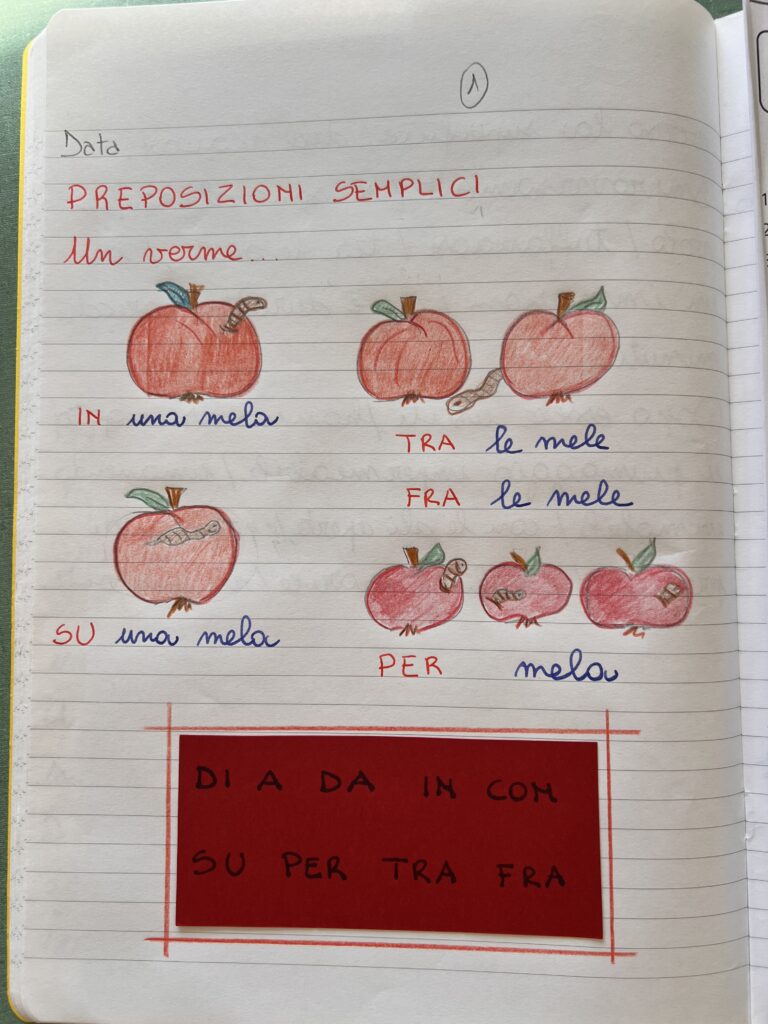 1
Data
PREPOSIZIONI SEMPLICI
Un verme...
IN una mela
TRA le mele
FRA le mele
SU una mela
PER mela
DI A DA IN CON
SU PER TRA FRA